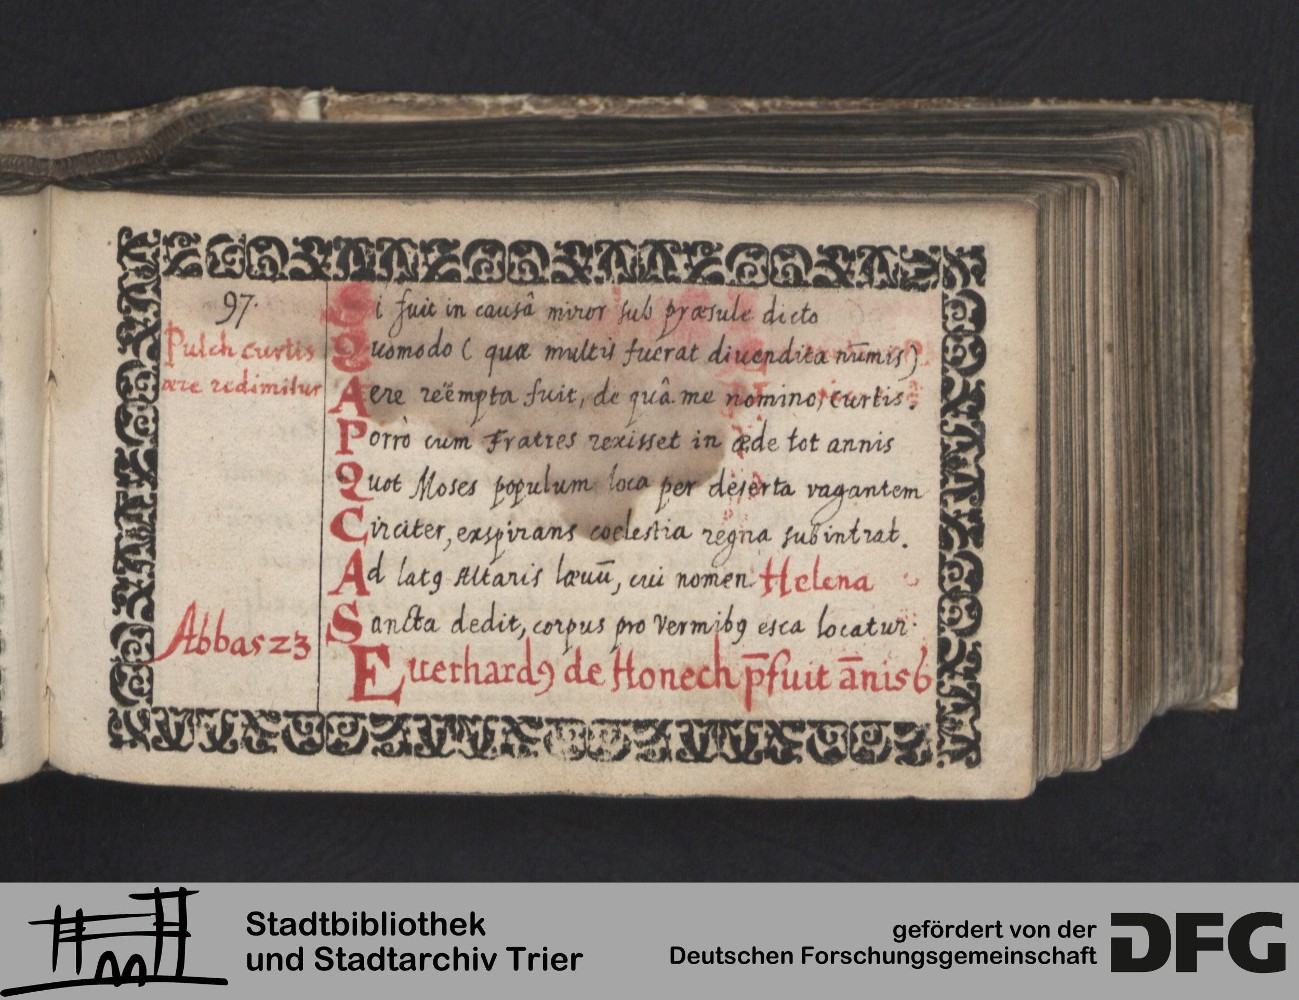 97.
Pulch curtis
ære redimitur
Si fuit in causâ miror sub præsule dicto
Quomodo ( quæ multis fuerat diuendita nūmis)
Aere reëmpta fuit, de quâ me nomino, curtis.
Porrò cum Fratres rexisset in æde tot annis
Quot Moses populum loca per deserta vagantem
Circiter, exspirans coelestia regna subintrat.
Ad latꝰ Altaris læuū, cui nomen Helena
Sancta dedit, corpus pro vermibꝰ esca locatur.
Abbas 23
Euerhardꝰ de Honech p̄fuit ānis 6
Stadtbibliothek
und Stadtarchiv Trier
gefördert von der
Deutschen Forschungsgemeinschaft
DFG